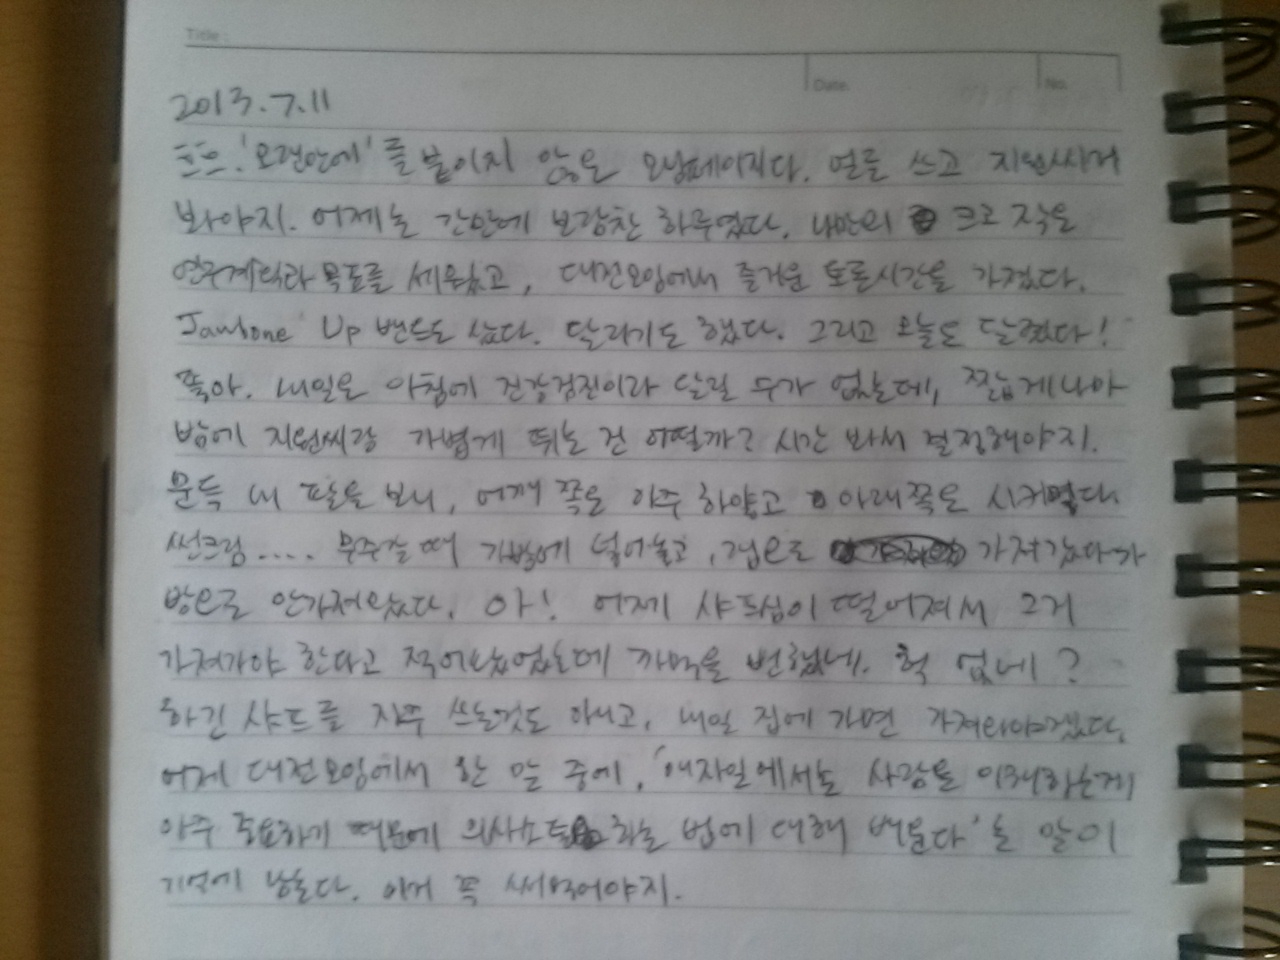 Title:
Date. No.
2013.7.11
흐흐. '오랜만에'를 붙이지 않은 모닝페이지다. 얼른 쓰고 지원씨거
봐야지. 어제는 간만에 보람찬 하루였다. 나만의 크고 작은
연구계획과 목표를 세웠고, 대전모임에서 즐거운 토론시간을 가졌다.
Jawbone Up 밴드도 샀다. 달리기도 했다. 그리고 오늘도 달렸다!
좋아. 내일은 아침에 건강검진이라 달릴 수가 없는데, 짧게나마
밤에 지원씨랑 가볍게 뛰는 건 어떨까? 시간 봐서 결정해야지.
문득 내 팔을 보니, 어깨 쪽은 아주 하얗고 아래쪽은 시커멓다.
썬크림..... 무주갈 때 가방에 넣어놓고, 집으로 가져갔다가
방으로 안가져왔다. 아! 어제 샤프심이 떨어져서 그거
가져가야 한다고 적어놨었는데 까먹을 뻔했네. 헉 없네?
하긴 샤프를 자주 쓰는것도 아니고, 내일 집에 가면 가져와야겠다.
어제 대전모임에서 한 말 중에, '애자일에서는 사람을 이해하는게
아주 중요하기 때문에 의사소통 하는 법에 대해 배운다'는 말이
기억에 남는다. 이거 꼭 써먹어야지.